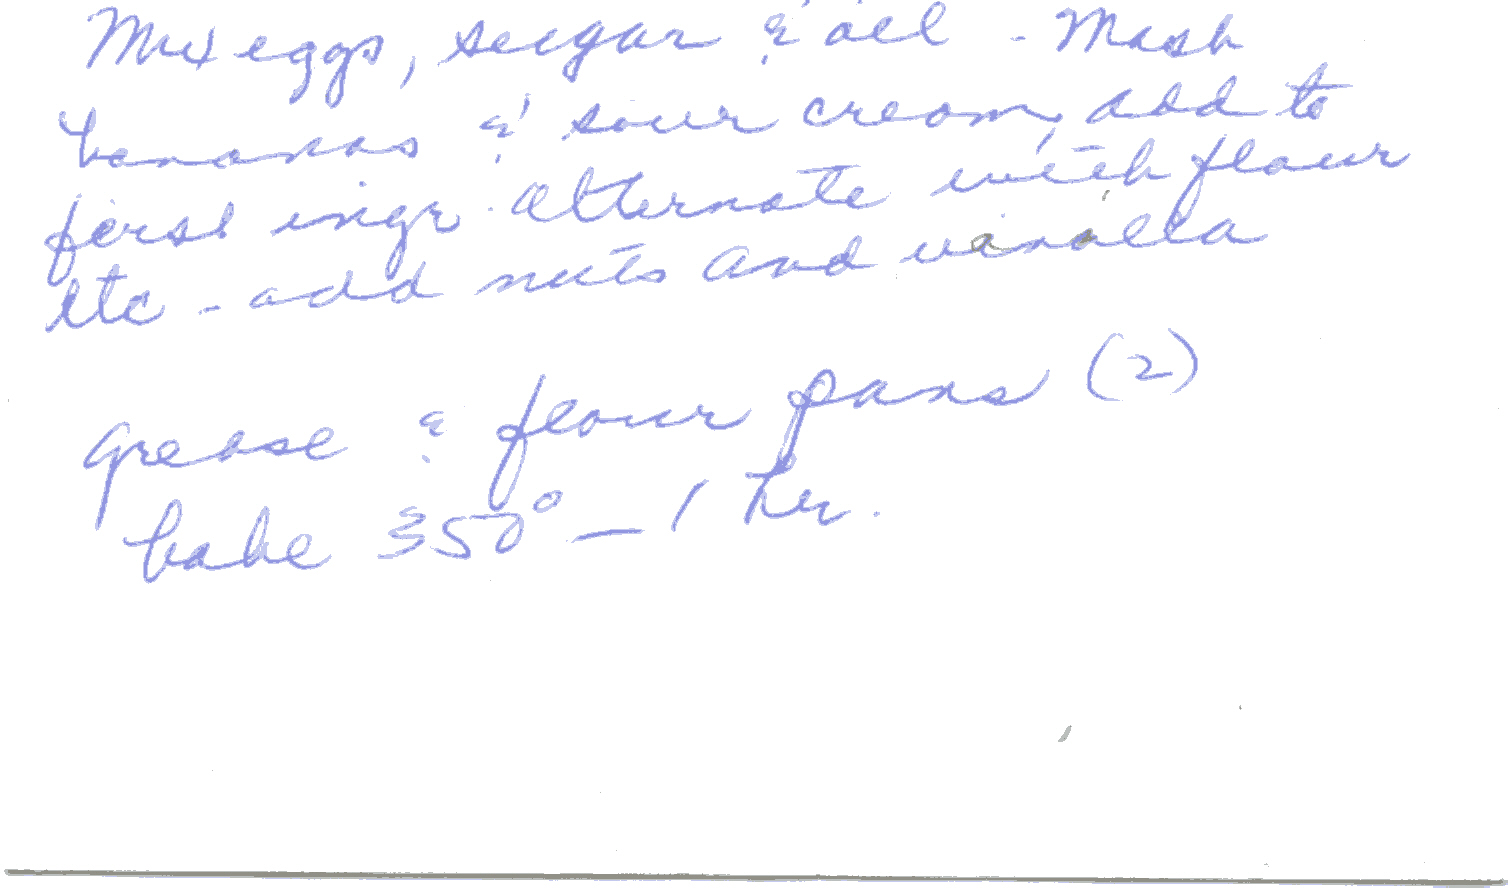 Mix eggs, sugar & oil - Mash
bananas & sour cream, add to
first ingr. alternate with flour
etc - add nuts and vanilla
grease & flour pans (2)
bake 350° - 1 hr.